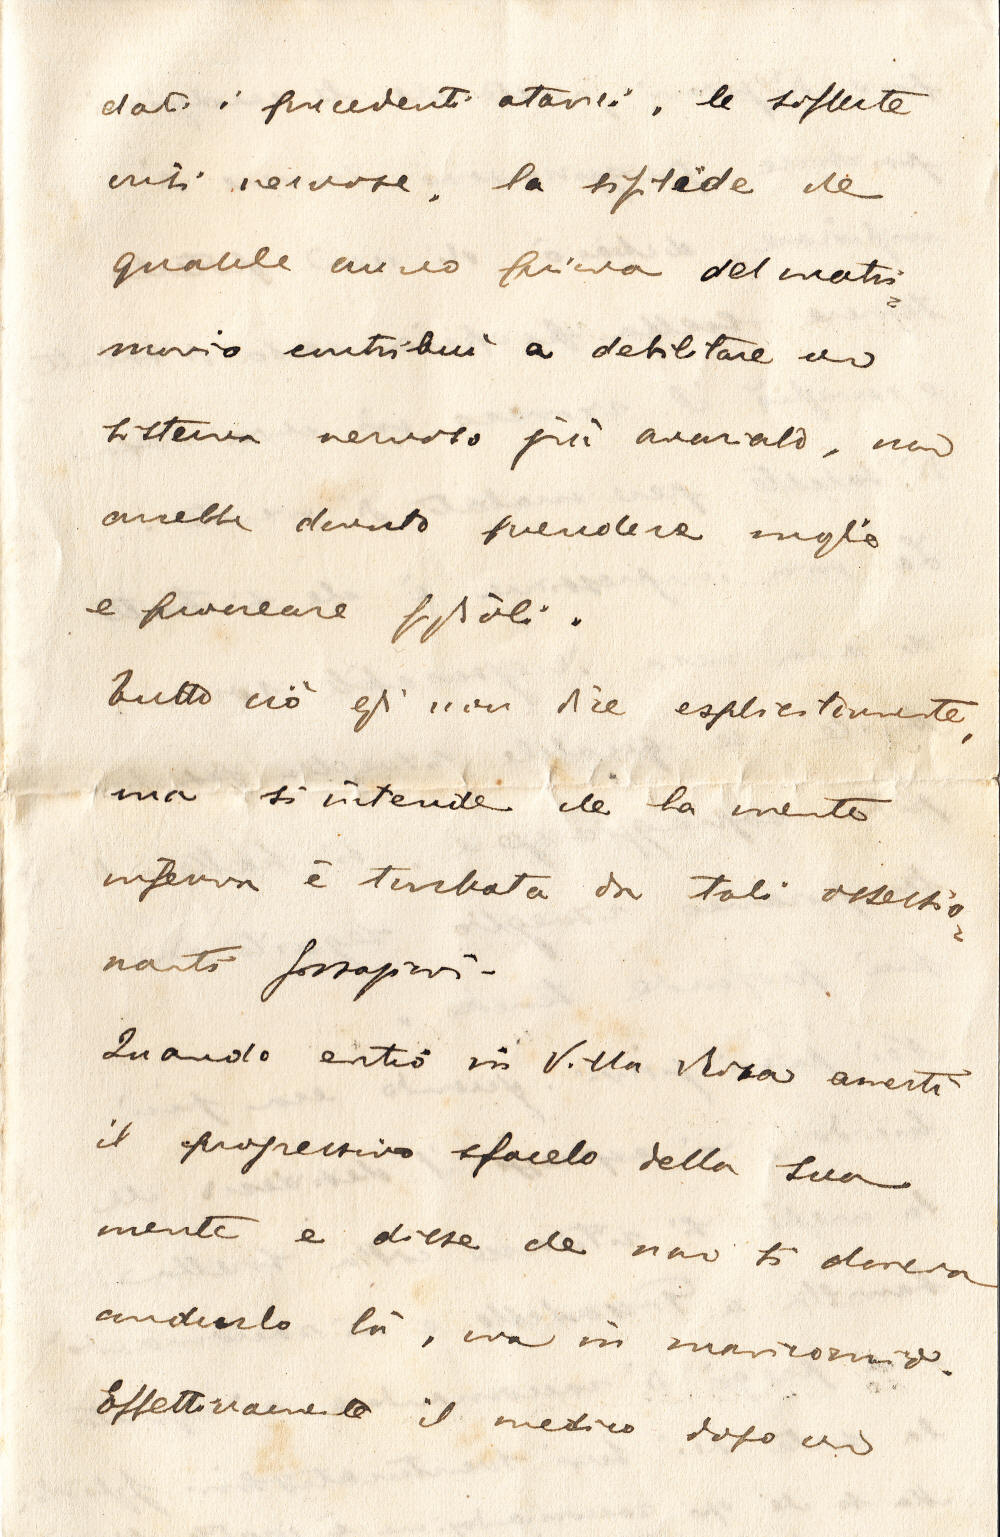 dati i precedenti atavici, le sofferte
crisi nervose, la sifilide che
qualche anno prima del matri=
monio contribuì a debilitare un
sistema nervoso già avariato, non
avrebbe dovuto prendere moglie
e procreare figlioli.
Tutto ciò egli non dice esplicitamente,
ma si intende che la mente
inferma è turbata da tali ossessio=
nanti
Quando entrò in Villa Rosa avvertì
il progressivo sfacelo della sua
mente e disse che non si doveva
condurlo là, ma in manicomio.
Effettivamente il medico dopo un